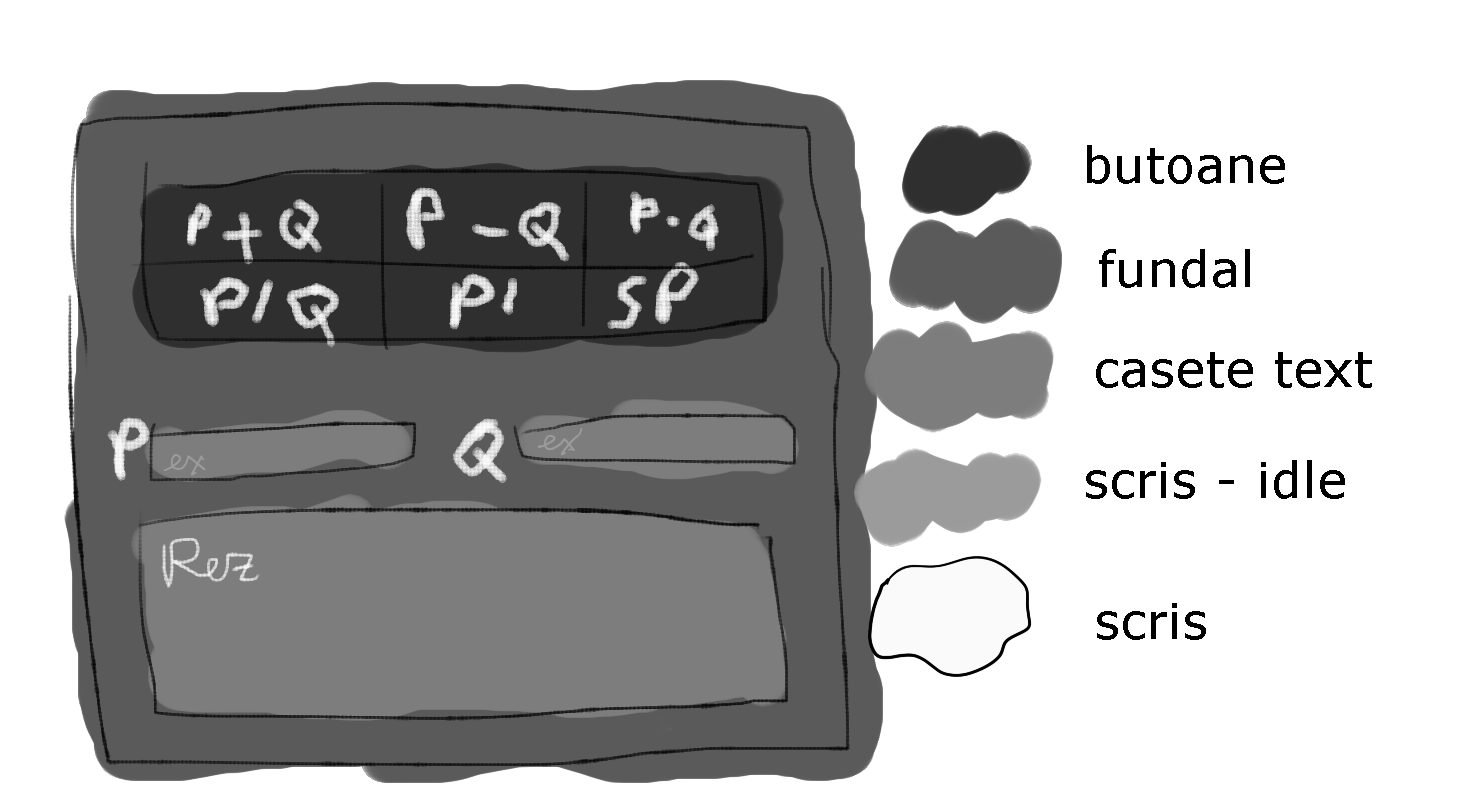 P+Q P-Q P·Q
P/Q P' SP
P ex Q ex
Rez
butoane
fundal
casete text
scris - idle
scris